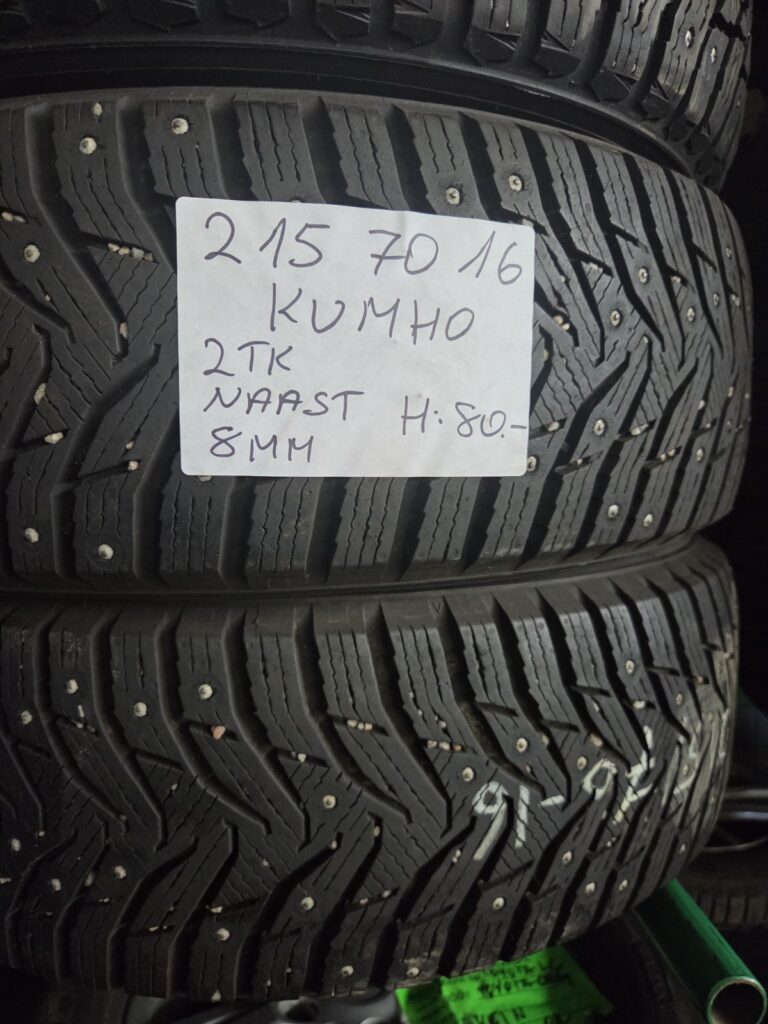 215 70 16
KUMHO
2TK
NAAST H: 80.-
8MM
70-16